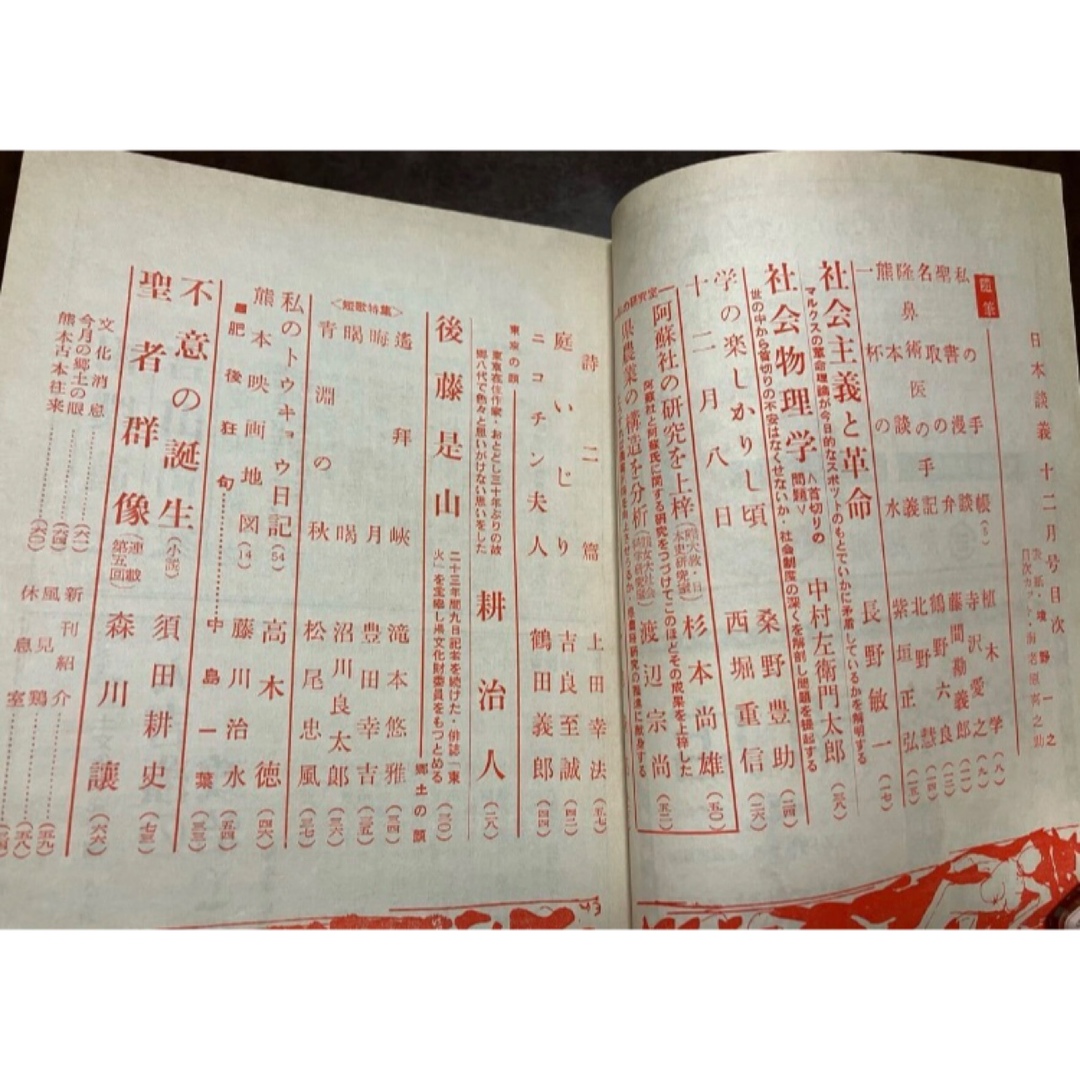 日本談義十二月号目次
目次カット・海老原喜之助
随筆
私の手帳(5) 植木学(八)
聖書の漫談 寺沢愛之(九)
名取の弁 藤間勘義郎(一一)
隆鼻術医の手記 鶴野六良(一二)
熊本談義 北野一慧(一四)
一杯の水 紫垣正弘(一五)
長野敏一(一七)
社会主義と革命
マルクスの革命理論が今日的なスポットのもとでいかに矛盾しているかを解明する
中村左衛門太郎(三八)
社会物理学
〈首切りの問題〉
世の中から首切りの不安はなくせないか・社会制度の深くを解剖し問題を提起する
桑野豊助(二四)
学の楽しかりし頃 西堀重信(二六)
十二月八日 杉本尚雄(五〇)
阿蘇社の研究を上梓
阿蘇社と阿蘇氏に関する研究をつづけてこのほどその成果を上梓した
県農業の構造を分析 渡辺宗尚(五二)
詩二篇 上田幸法(五七)
庭いじり 吉良至誠(四二)
ニコチン夫人 鶴田義郎(四四)
東京の顔
東京在住作家・おとどし三十年ぶりの故郷八代で色々と思いがけない思いをした
耕治人(二八)
後藤是山
二十三年間九日記者を続けた・俳誌「東火」を主宰し県文化財委員をもつとめる
郷土の顔
(三〇)
〈短歌特集〉
遙拝峽 滝本悠雅(三四)
晦月 豊田幸吉(三五)
暍暍 沼川良太郎(三六)
青淵の秋 松尾忠風(三七)
私のトウキョウ日記(54) 高木徳(四六)
熊本映画地図(14) 藤川治水(五四)
肥後狂句 中島一葉(三三)
不意の誕生(小説) 須田耕史(七三)
聖者群像(連載第五回) 森川譲(六六)
文化消息(六二)
今月の郷土の眼(六四)
熊本古本往来(六〇)
新刊紹介(五九)
風見鶏(五八)
休息室